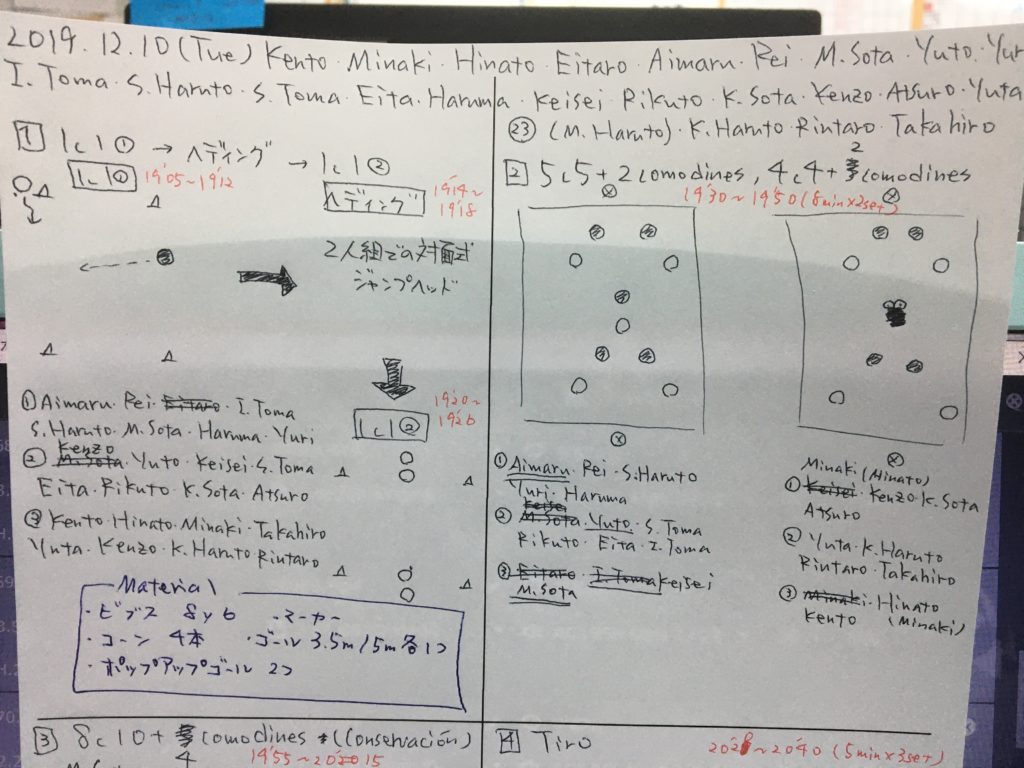 2019.12.10 (Tue) Kento・Minaki・Hinato・Eitaro・Aimaru・Rei・M.Sota・Yuto・Yur
I.Toma・S.Haruto・S.Toma・Eita・Haruma・Keisei・Rikuto・K.Sota・Kenzo・Atsuro・Yuta
㉓ (M.Haruto)・K.Haruto・Rintaro・Takahiro
1 1c1① → ヘディング → 1c1②
1c1① 19'05~19'12
ヘディング 19'14~19'18
2人組での対面式
ジャンプヘッド
1c1② 19'20~19'26
① Aimaru・Rei・Eitaro・I.Toma
S.Haruto・M.Sota・Haruma・Yuri
Kenzo
② M.Sota・Yuto・Keisei・S.Toma
Eita・Rikuto・K.Sota・Atsuro
③ Kento・Hinato・Minaki・Takahiro
Yuta・Kenzo・K.Haruto・Rintaro
Material
・ビブス 8y6 ・マーカー
・コーン 4本 ・ゴール 3.5m/5m各1つ
・ポップアップゴール 2つ
2 5c5+2comodines, 4c4+2comodines
19'30~19'50 (8min×2set)
① Aimaru・Rei・S.Haruto
Yuri・Haruma
Keisei
② M.Sota・Yuto・S.Toma
Rikuto・Eita・I.Toma
③ Eitaro・I.Toma Keisei
M.Sota
Minaki (Hinato)
① Keisei・Kenzo・K.Sota
Atsuro
② Yuta・K.Haruto
Rintaro・Takahiro
③ Minaki・Hinato
Kento (Minaki)
3 8c10+4comodines *(Conservación)
19'55~20'15
4 Tiro
~20'40 (5min×3set)